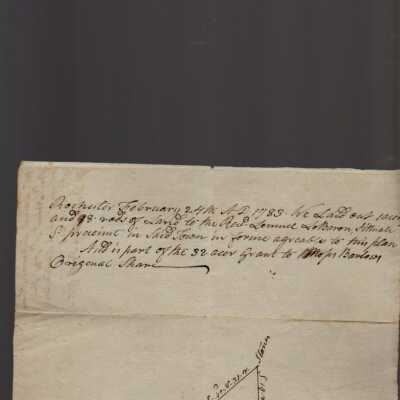 Rochester February 24th A:D 1783 We Laid out
and 98 rods of Land to the Revd Lemuel LeBaron, Sittuate
precinct in Said Town in forme agreable to this plan
And is part of the 32 acer Grant to Moses Barlow
Origenal Share